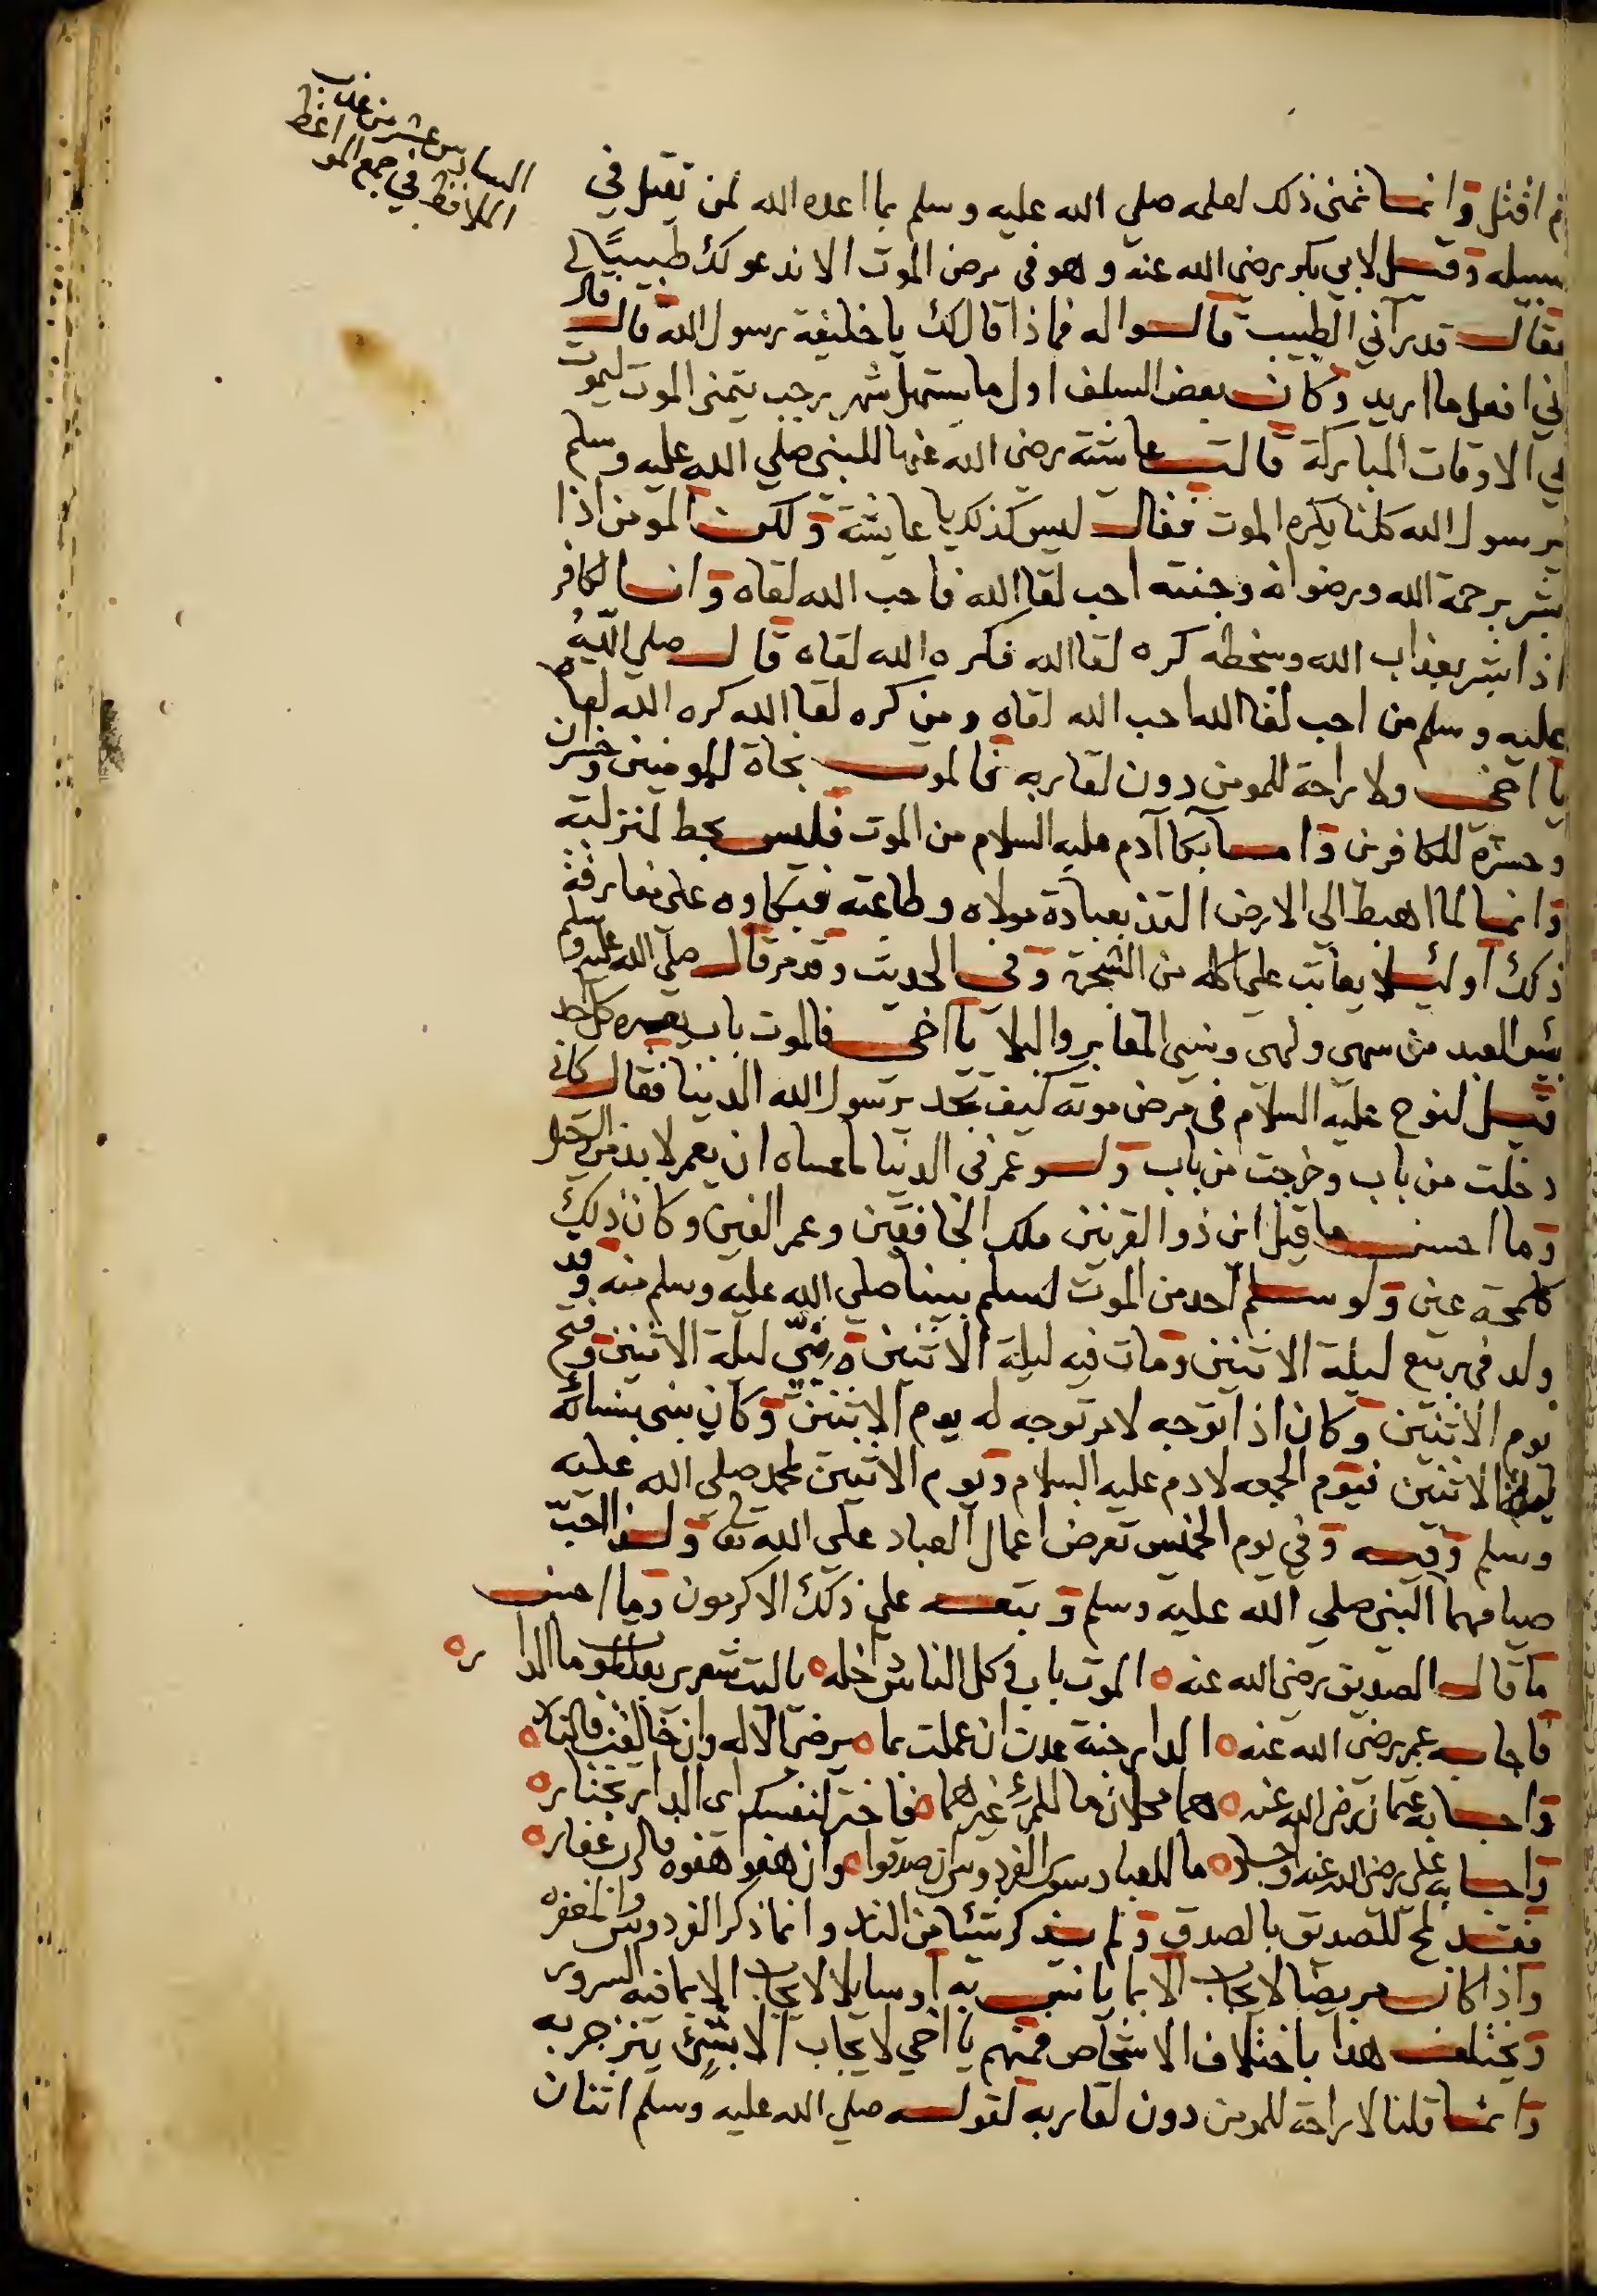 السادس عشر من عذب
اللافظ في جمع المواعظ
ثم اقتل وانما تمنى ذلك لعلمه صلي الله عليه وسلم بما اعده الله لمن تقبل في
سبيله وقيل لابي بكر رضى الله عنه وهو في مرض الموت الا ندعو لك طبيبًا
فقال قد رآني الطبيب قالوا له فماذا قال لك يا خليفة رسول الله قال قال
اني افعل ما اريد وكان بعض السلف اول ما يستهل شهر رجب يتمنى الموت ليموت
في الاوقات المباركة قالت عائشة رضى الله عنها للنبي صلي الله عليه وسلم
يرسول الله كلنا يكره الموت فقال ليس كذلك يا عايشة ولكن المومن اذا
بشر برحمة الله ورضوانه وجنته احب لقا الله فاحب الله لقاه وان الكافر
اذا بشر بعذاب الله وسخطه كره لقا الله فكره الله لقاه قال صلي الله
عليه وسلم من احب لقا الله احب الله لقاه ومن كره لقا الله كره الله لقاه
يا اخى ولا راحة للمومن دون لقا ربه فالموت نجاة للمومنين وخسران
وحسرة للكافرين واما بكا آدم عليه السلام من الموت فليس لحط لمنزلته
وانما لما اهبط الى الارض التذ بعبادة مولاه وطاعته فبكاوه على مفارقة
ذلك او ليلا يعاتب على اكله من الشجرة وفي الحديث وقد مر قال صلي الله عليه وسلم
بئس العبد من سهى ولهى ونسي المقابر والبلا يا اخى فالموت باب يعبره كل احد
قيل لنوح عليه السلام في مرض موته كيف تجد يرسول الله الدنيا فقال كاني
دخلت من باب وخرجت من باب ولو عمر في الدنيا ما عساه ان يعمر لا بد من الرحيل
وما احسن ما قيل ان ذو القرنين ملك الخافقين وعمر الفين وكان ذلك
كلمحة عين ولو سلم احد من الموت لسلم نبينا صلي الله عليه وسلم منه وقد
ولد في ربيع ليلة الاثنين ومات فيه ليلة الاثنين ونبي ليلة الاثنين وفتح
يوم الاثنين وكان اذا توجه لامر توجه له يوم الاثنين وكان بنى بنسائه
الاثنين فيوم الجمعه لادم عليه السلام ويوم الاثنين لمحمد صلي الله عليه
وسلم وفيه وفي يوم الخميس تعرض اعمال العباد على الله تعا ولذا احبّ
صيامهما النبي صلي الله عليه وسلم وتبعه على ذلك الاكرمون وما احسن
ما قال الصديق رضي الله عنه الموت باب وكل الناس داخله يا ليت شعري بعد الموت ما الدار
فاجابه عمر رضى الله عنه الدار جنة عدن ان عملت بما يرضى الاله وان خالفت فالنار
واجابه عثمان رضى الله عنه هما محلان ما للمرء غيرهما فاختر لنفسك اى الدار تختار
واجابه علي رضى الله عنه ما للعباد سوى الفردوس ان صدقوا وان هفوا هفوة فالرب غفار
فقد لمح للصديق بالصدق ولم يذكر شيئا من النار وانما ذكر الفردوس والمغفره
واذا كان مريضا لا يجاب الا بما يانس به او سايلا لا يجاب الا بما فيه السرور
ويختلف هذا باختلاف الاشخاص فمنهم يا اخي لا يجاب الا بشئ ينزجر به
وانما قلنا لا راحة للمومن دون لقا ربه لقوله صلي الله عليه وسلم اثنان